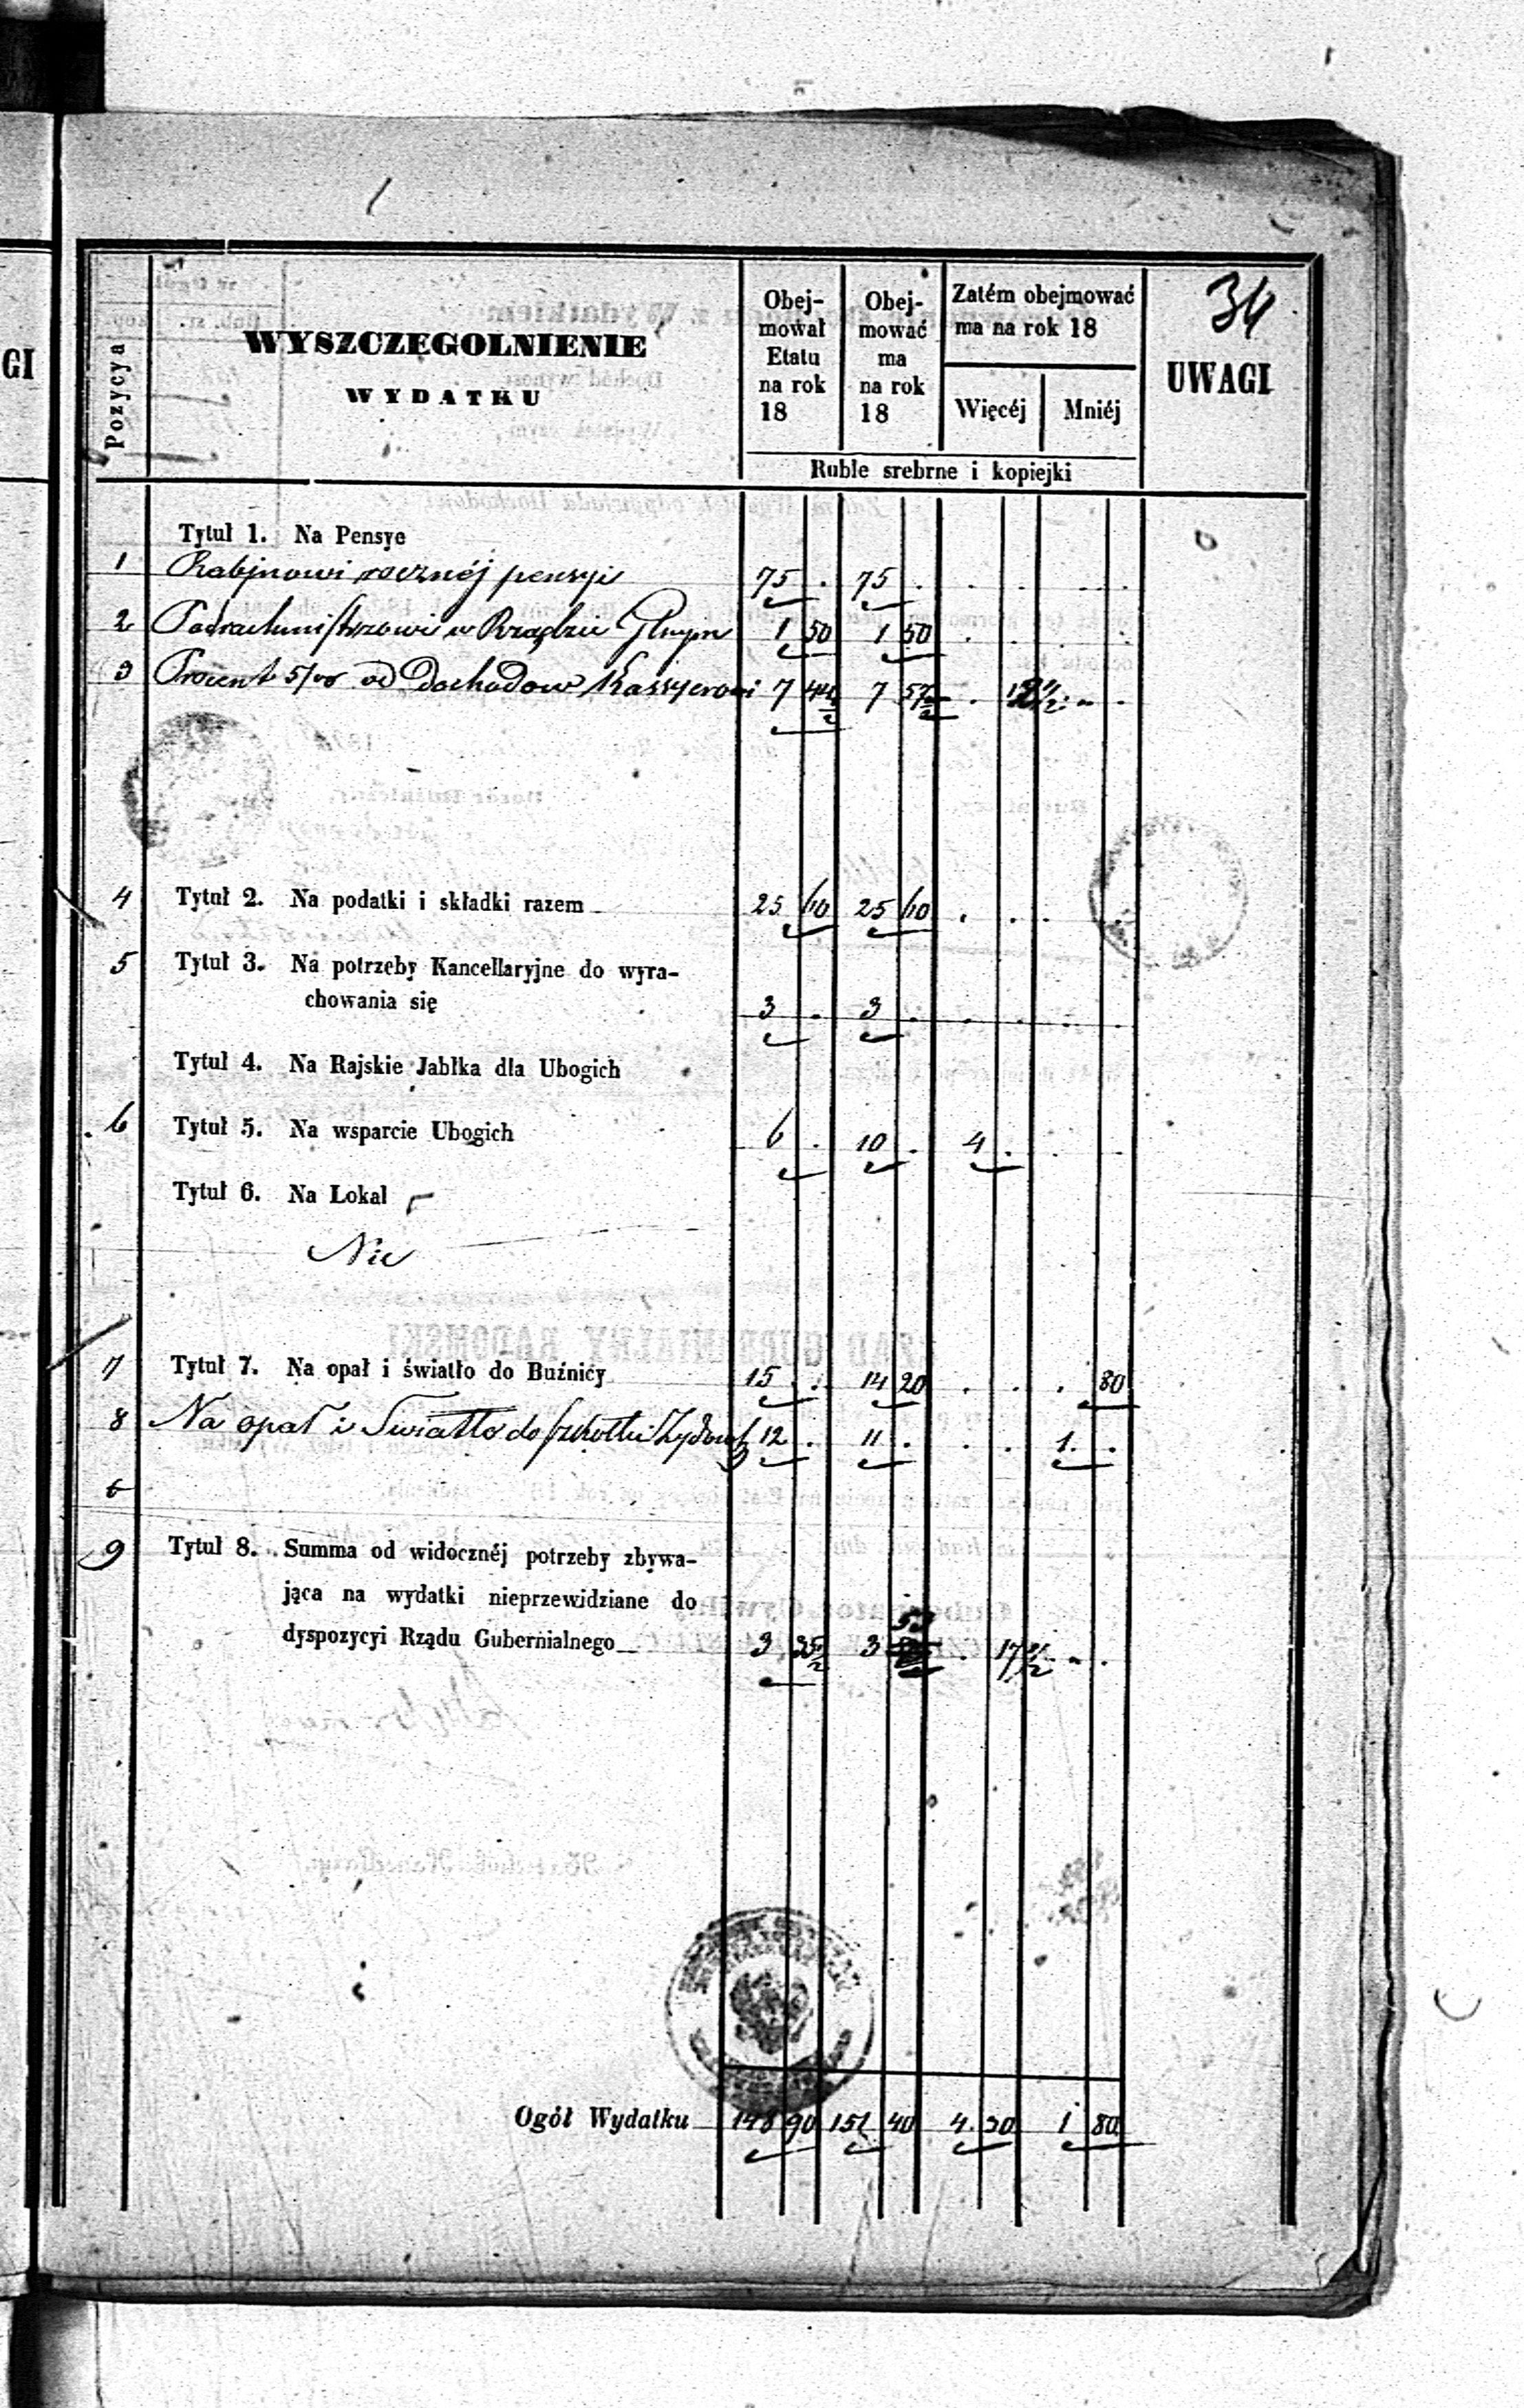 34
GI
Pozycya
WYSZCZEGOLNIENIE
WYDATKU
Obej-
mował
Etatu
na rok
18
Obej-
mować
ma
na rok
18
Zatém obejmować
ma na rok 18
Więcéj
Mniéj
UWAGI
Ruble srebrne i kopiejki
Tytuł 1. Na Pensye
1 Rabjnowi rocznéj pensyi 75 . 75 .
2 Podrachmistrzowi w Rządzie Glnym 1 50 1 50
3 Procent 5/00 od Dochodow Kassyerowi 7 44½ 7 57½ . 12½
4 Tytuł 2. Na podatki i składki razem 25 60 25 60
5 Tytuł 3. Na potrzeby Kancellaryjne do wyra-
chowania się 3 . 3 .
Tytuł 4. Na Rajskie Jabłka dla Ubogich
6 Tytuł 5. Na wsparcie Ubogich 6 . 10 . 4 .
Tytuł 6. Na Lokal
Nic
7 Tytuł 7. Na opał i światło do Buźnicy 15 . 14 20 . . . 80
8 Na opał i Swiatło do szkołki Żydows 12 . 11 . . . 1 .
9 Tytuł 8. Summa od widocznéj potrzeby zbywa-
jąca na wydatki nieprzewidziane do
dyspozycyi Rządu Gubernialnego 3 35½ 3 53 . 17½
Ogół Wydatku 148 90 151 40 4 30 1 80